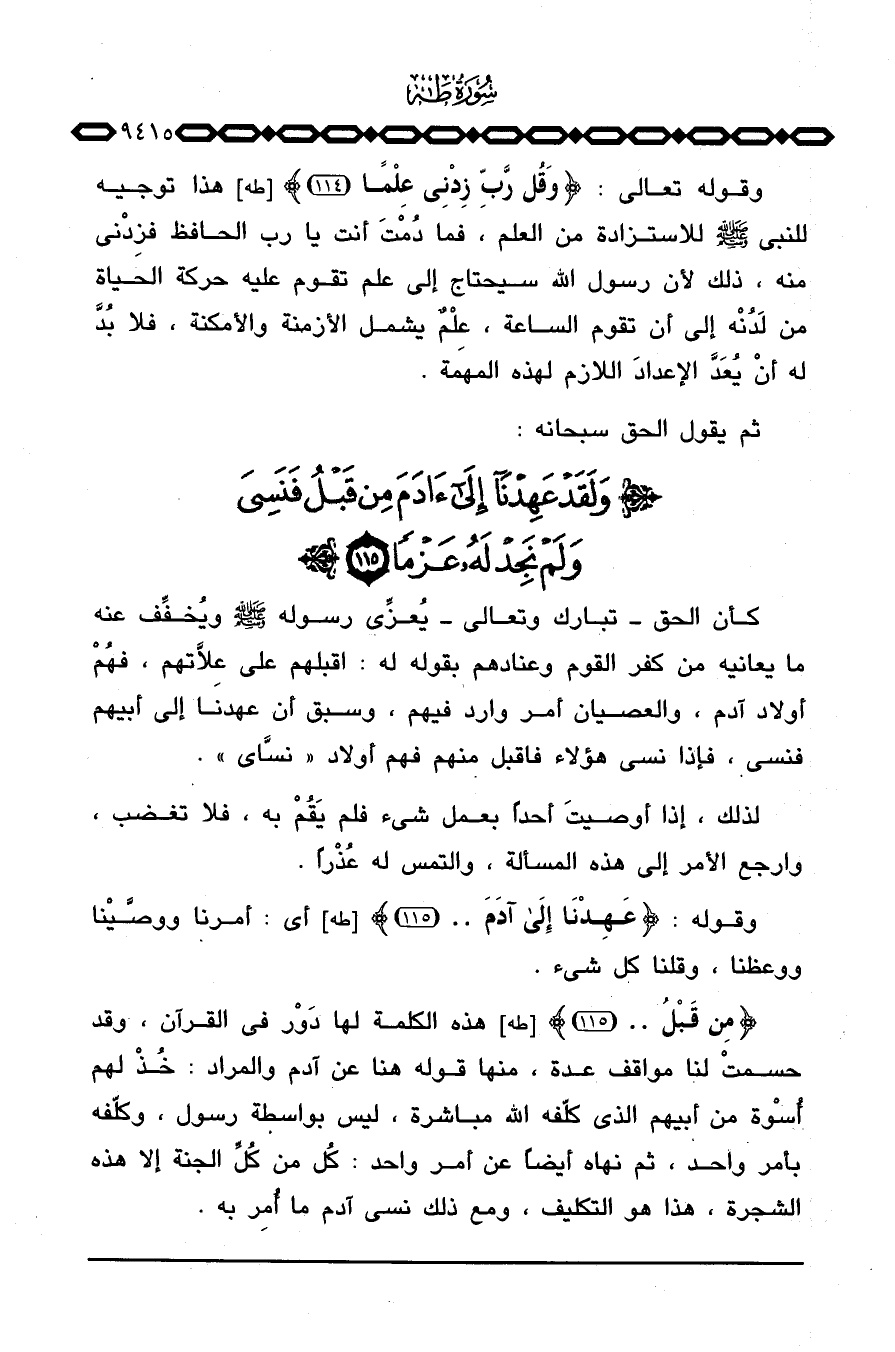 سُورَةُ طه
٩٤١٥
وقـوله تعـالى : ﴿وَقُل رَّبِّ زِدْنِى عِلْمًا (١١٤)﴾ [طه] هذا توجـيـه
للنبى ﷺ للاستـزادة من العلم ، فما دُمْتَ أنت يا رب الحـافظ فزِدْنى
منه ، ذلك لأن رسول الله سـيحتاج إلى علم تقـوم عليه حركة الحـياة
من لَدُنْه إلى أن تقوم الساعة ، علْمٌ يشمـل الأزمنة والأمكنة ، فلا بُدَّ
له أنْ يُعَدَّ الإعدادَ اللازم لهذه المهمة .
ثم يقول الحق سبحانه :
﴿ وَلَقَدْ عَهِدْنَآ إِلَىٰٓ ءَادَمَ مِن قَبْلُ فَنَسِىَ
وَلَمْ نَجِدْ لَهُۥ عَزْمًا ١١٥ ﴾
كـأن الحق ـ تبـارك وتعـالى ـ يُعـزِّى رسـوله ﷺ ويُخـفِّف عنه
ما يعانيه من كفر القوم وعنادهم بقوله له : اقبلهم على عِلاَّتهم ، فهُمْ
أولاد آدم ، والعصـيان أمـر وارد فيهم ، وسـبق أن عهدنـا إلى أبيهم
فنسى ، فـإذا نسى هؤلاء فاقبل منهم فهم أولاد « نسَّاى » .
لذلك ، إذا أوصـيتَ أحداً بعـمل شىء فلم يَقُمْ به ، فلا تغـضب ،
وارجع الأمر إلى هذه المسـألة ، والتمس له عُذْراً .
وقـوله : ﴿عَـهِدْنَا إِلَىٰ آدَمَ .. (١١٥)﴾ [طه] أى : أمـرنا ووصَّيْنا
ووعظنا ، وقلنا كل شىء .
﴿مِن قَبْلُ .. (١١٥)﴾ [طه] هذه الكلمـة لها دَوْر فى القـرآن ، وقد
حسـمتْ لنا مواقف عـدة ، منها قـوله هنا عن آدم والمراد : خُـذْ لهم
أُسْوة من أبيهم الذى كلّفه الله مبـاشرة ، ليس بواسطة رسول ، وكلّفه
بأمر واحـد ، ثم نهاه أيضـاً عن أمـر واحد : كُل من كُلِّ الجنة إلا هذه
الشجرة ، هذا هو التكليف ، ومع ذلك نسى آدم ما أُمِر به .